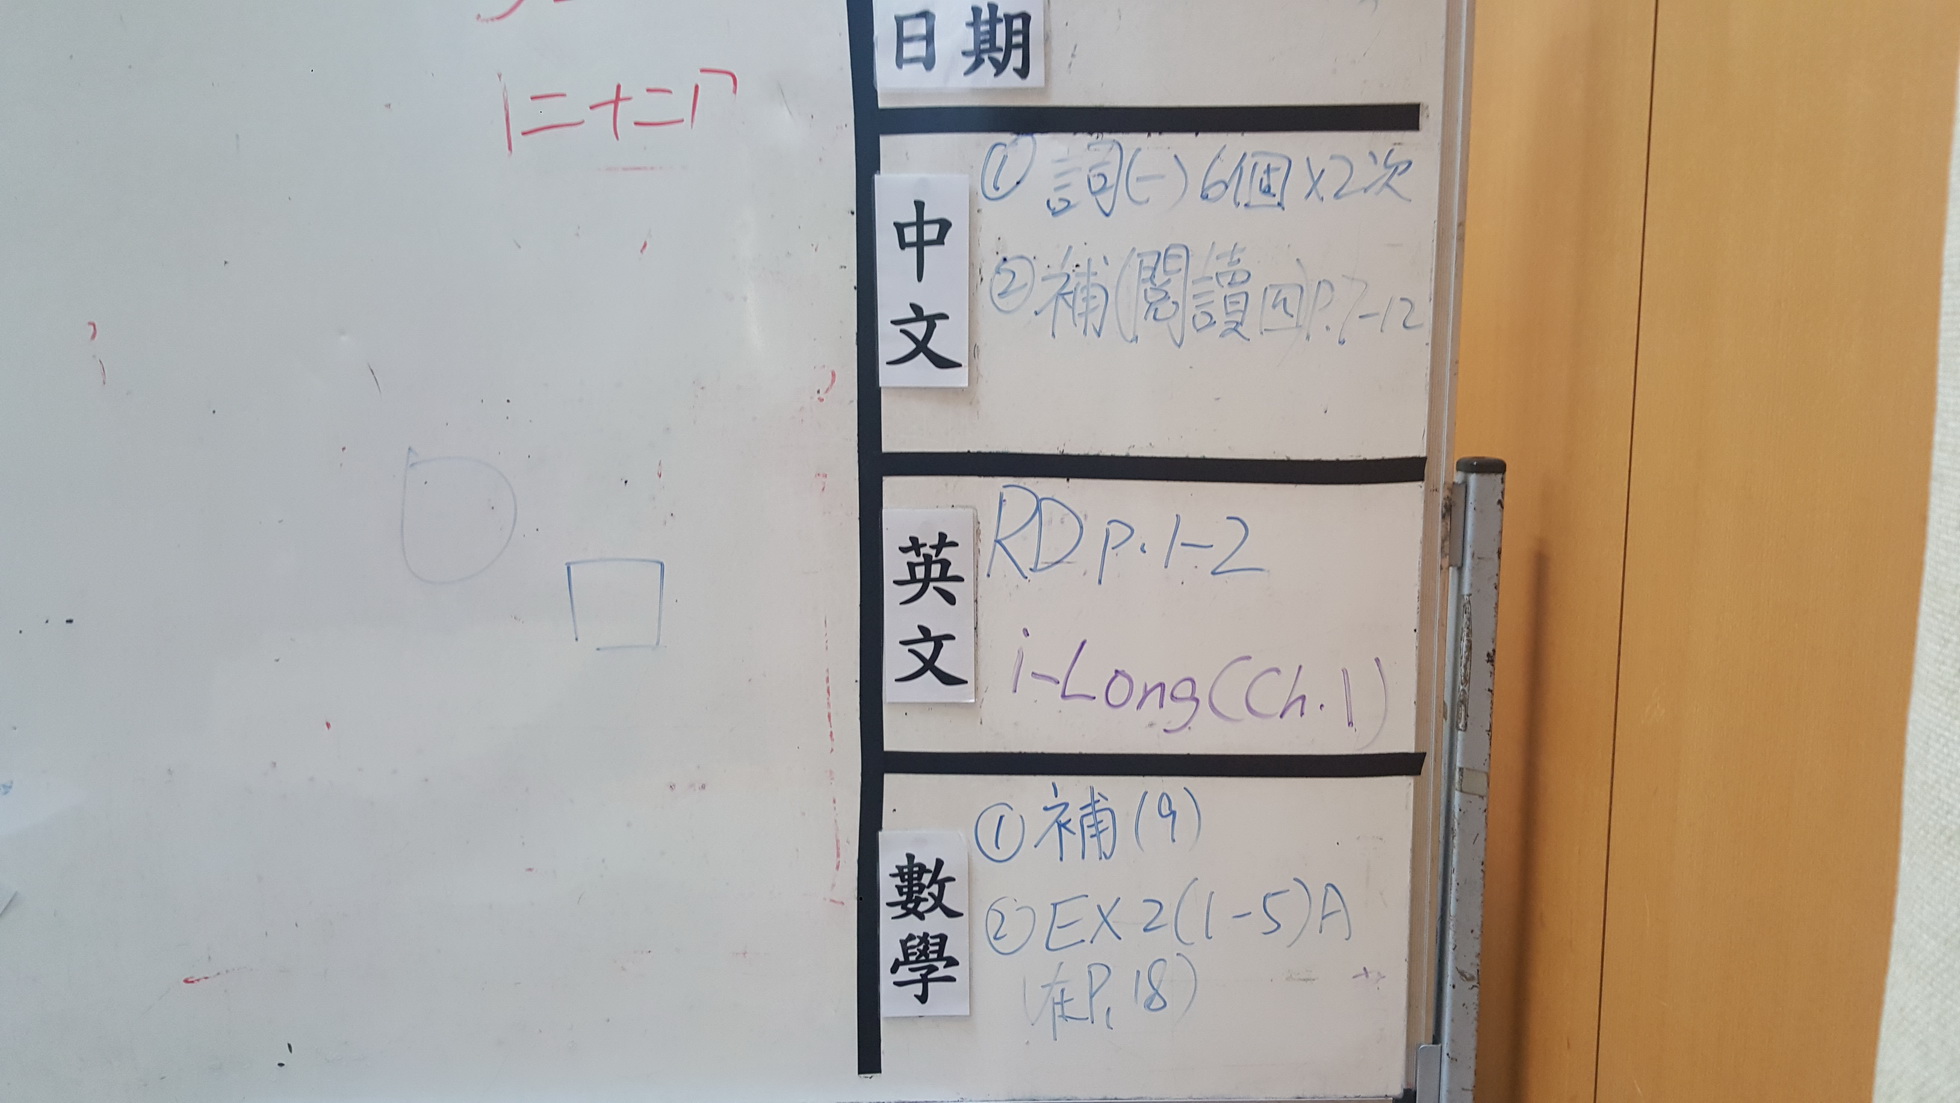 日期
中文
① 詞(一) 6個 x2次
② 補(閱讀四)P.7-12
英文
RD p.1-2
i-Long(Ch.1)
數學
① 補(9)
② EX 2(1-5)A
(在P.18)